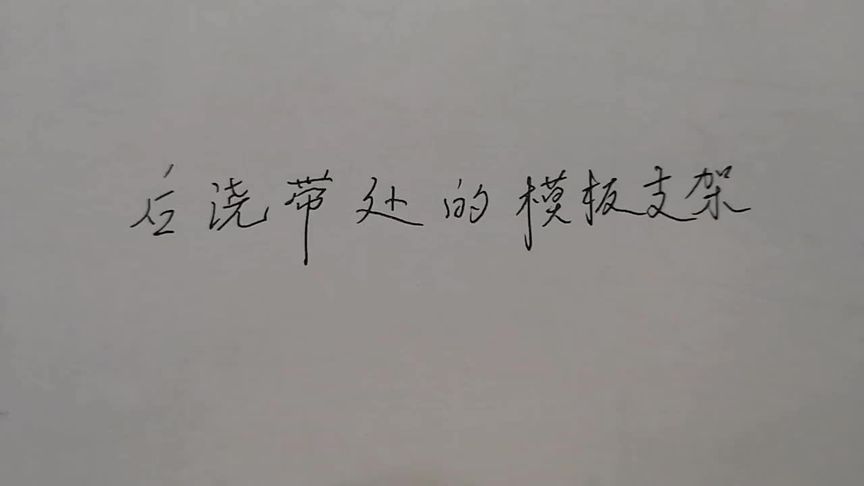 后浇带处的模板支架